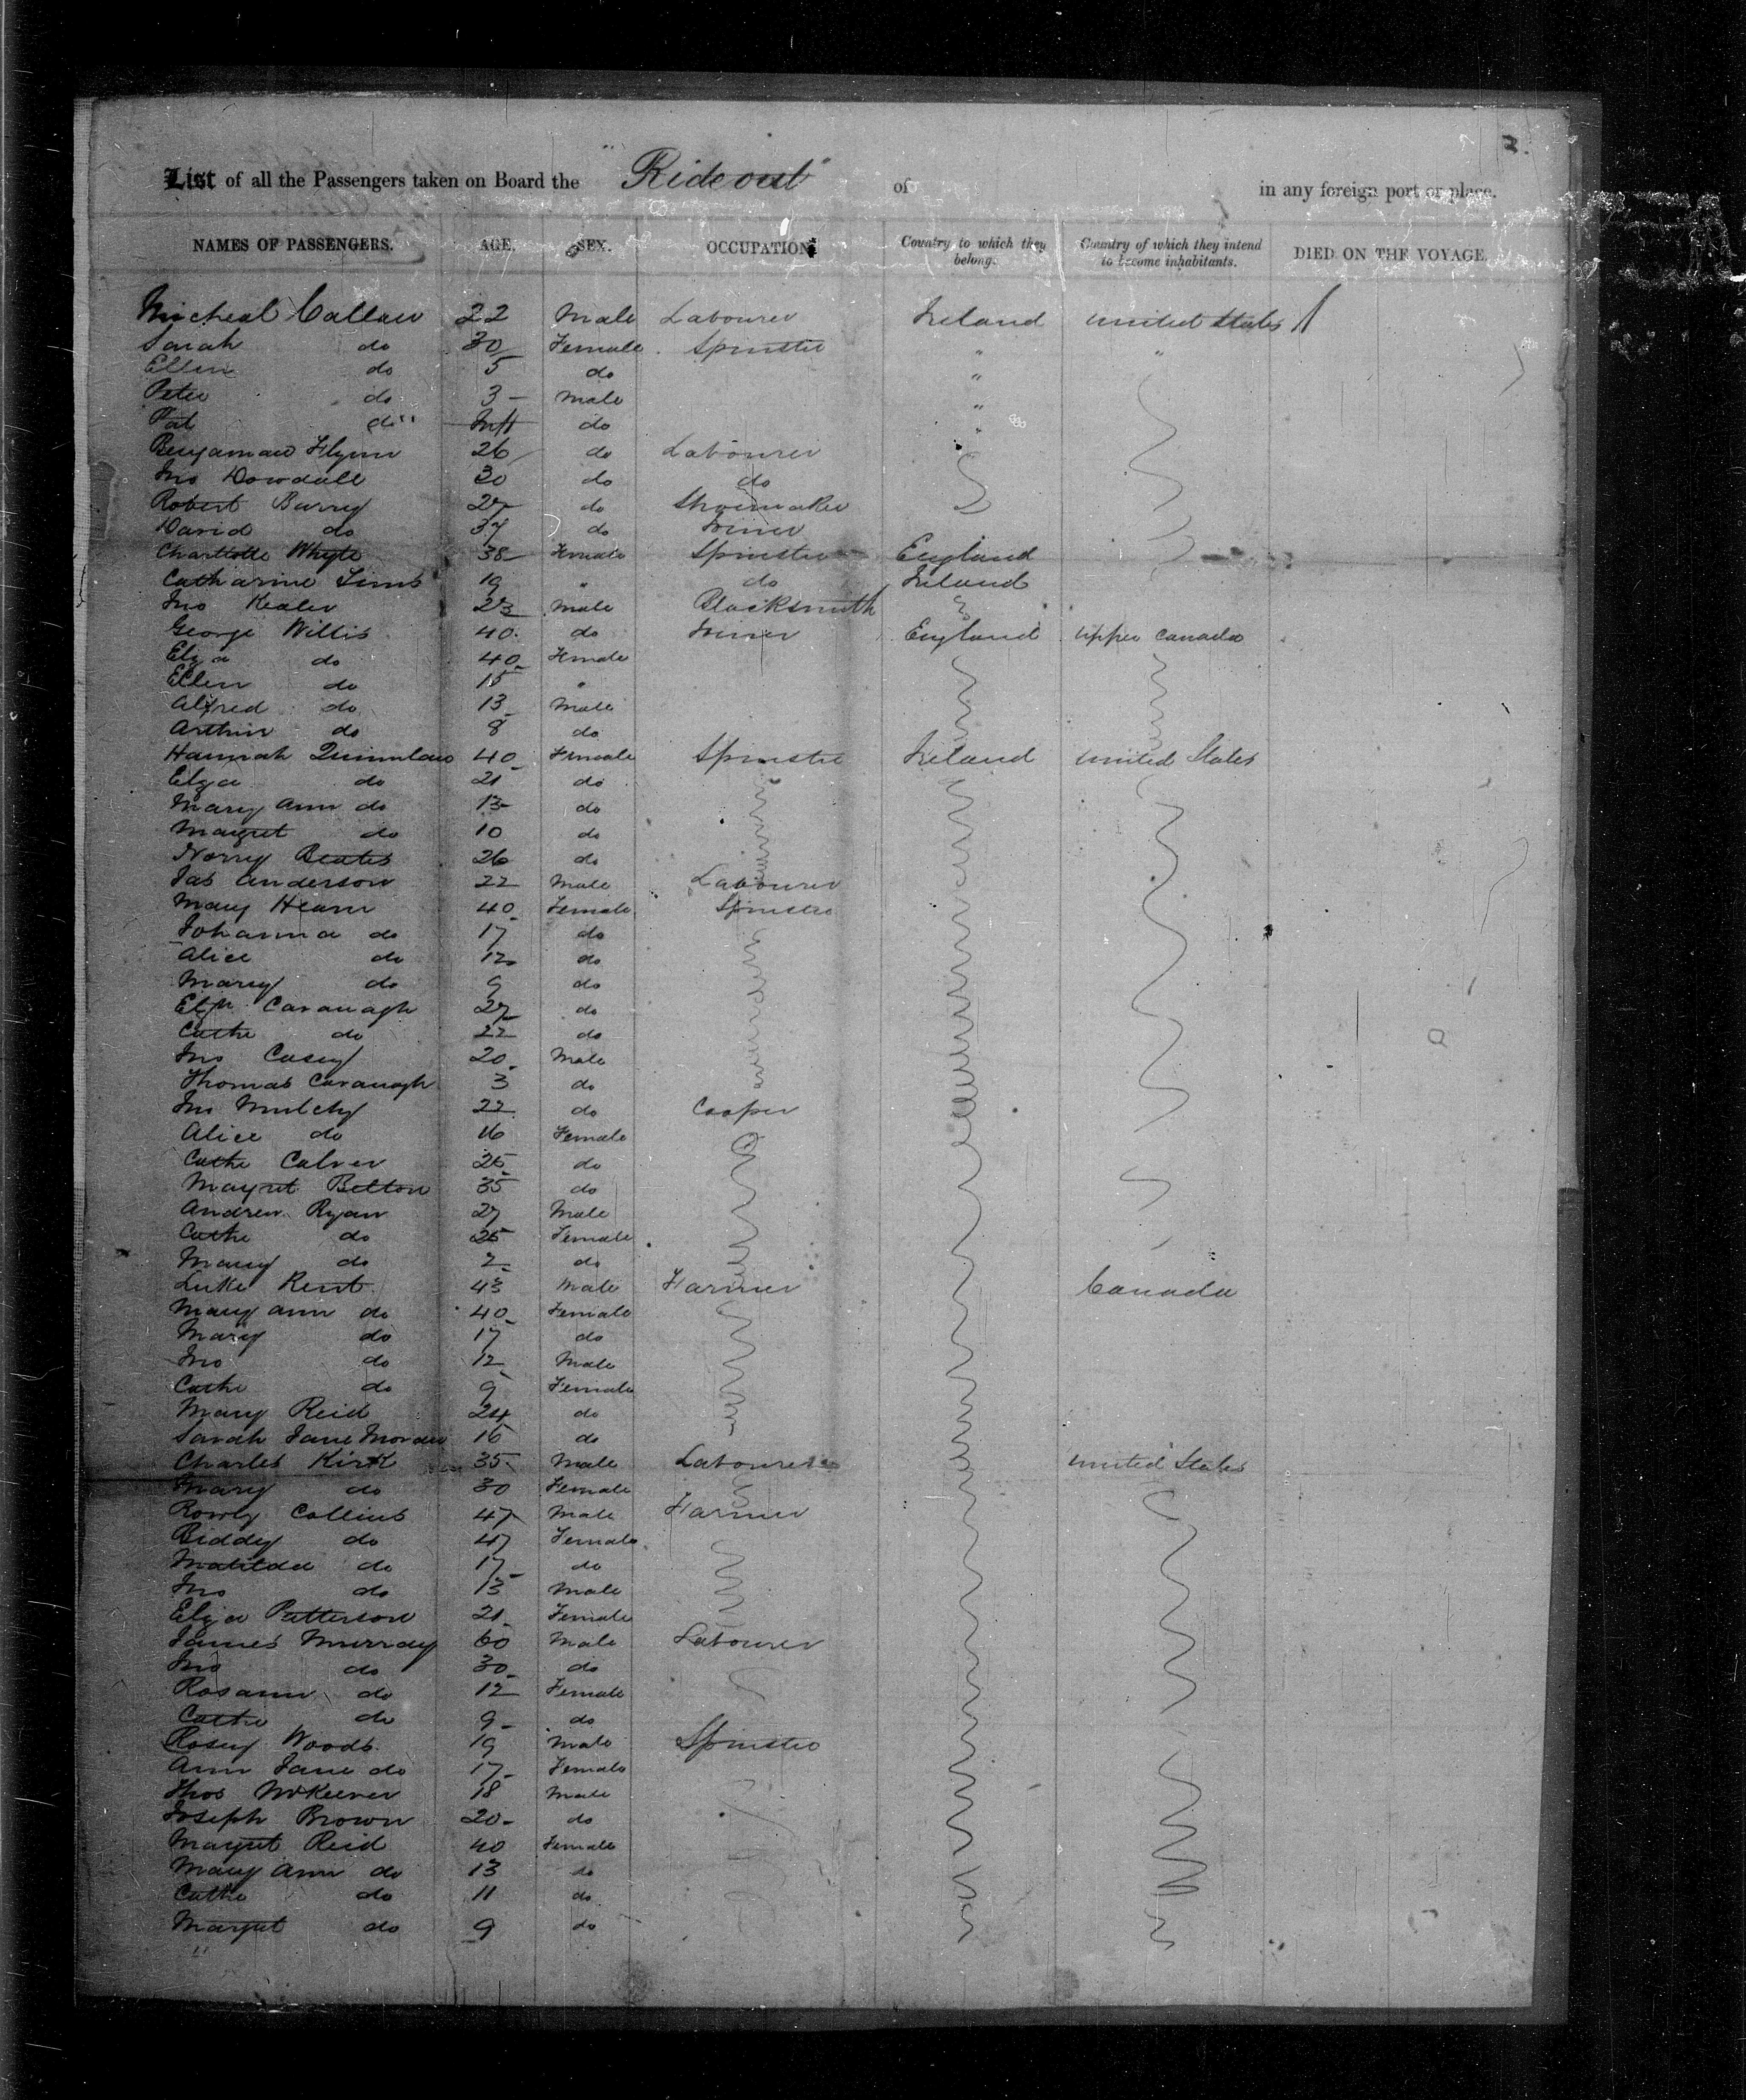 2.
List of all the Passengers taken on Board the "Rideout" of in any foreign port or place.
NAMES OF PASSENGERS. AGE. SEX. OCCUPATION Country to which they belong. Country of which they intend to become inhabitants. DIED ON THE VOYAGE.
Micheal Callan 22 Male Labourer Ireland United States
Sarah do 30 Female Spinster " "
Ellen do 5 do "
Peter do 3 Male "
Pat do Inft do "
Benjaman Flynn 26 do Labourer
Jno Dowdall 30 do do
Robert Barry 27 do Shoemaker
David do 37 do Joiner
Charltotte Whyte 38 Female Spinster England
Catharine Tims 19 " do Ireland
Jno Kealer 23 Male Blacksmith
George Willis 40 do Joiner England Upper Canada
Eliza do 40 Female
Ellen do 15 "
Alfred do 13 Male
Arthur do 8 do
Hannah Quinnlan 40 Female Spinster Ireland United States
Eliza do 21 do
Mary Ann do 13 do
Margret do 10 do
Norry Beates 26 do
Jas Anderson 22 Male Labourer
Mary Hearn 40 Female Spinster
Johanna do 17 do
Alice do 12 do
Mary do 9 do
Elzh Cavanagh 27 do
Cathe do 22 do
Jno Casey 20 Male
Thomas Cavanagh 3 do
Jno Mulchy 22 do Cooper
Alice do 16 Female
Cathe Calver 25 do
Margret Belton 35 do
Andrew Ryan 27 Male
Cathe do 25 Female
Mary do 2 do
Luke Kent 43 Male Farmer Canada
Mary Ann do 40 Female
Mary do 17 do
Jno do 12 Male
Cathe do 9 Female
Mary Reid 24 do
Sarah Jane do
Charles Kirk 35 Male Labourer United States
Mary do 30 Female
Rowly Collins 47 Male Farmer
Biddy do 47 Female
Matilda do 17 do
Jno do 13 Male
Eliza Patterson 21 Female
James Murray 60 Male Labourer
Jno do 30 do
Rosann do 12 Female
Cathe do 9 do
Rosey Woods 19 Male Spinster
Ann Jane do 17 Female
Thos McKeever 18 Male
Joseph Brown 20 do
Margret Reid 40 Female
Mary Ann do 13 do
Cathe do 11 do
Margret do 9 do